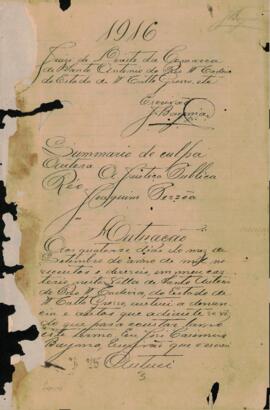 1916
Juizo de Direito da Comarca
de Santo Antonio do Rio Madeira
do Estado de Matto Grosso, etc
Escrivão
J. Bayma
Summario de culpa
Autora A Justiça Publica
Réo Joaquim
Autuação
Aos quatorze dias do mez de
Setembro do anno de mil no-
vecentos e dezeseis, em meu car-
torio nesta Villa de Santo Antonio
do Rio Madeira do Estado de
Matto Grosso, autuei a denun-
cia e autos que adiante se vê
do que para constar lavro
este termo. Eu José
Bayma, Escrivão que o escrevi
Autuei